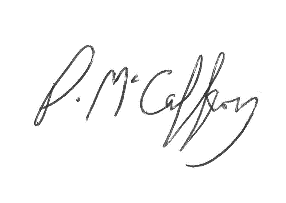 P. McCaffrey